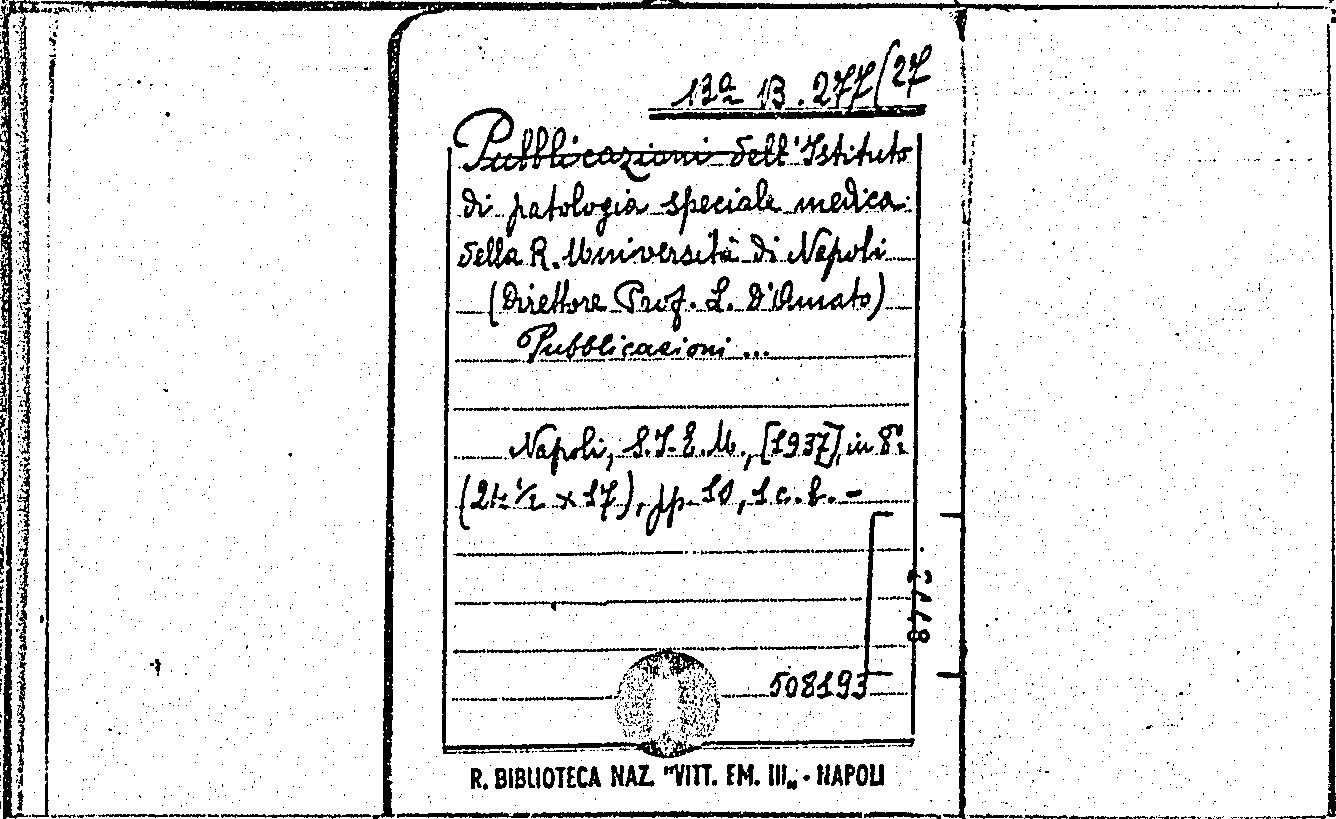 13ª B. 277(27
Pubblicazioni dell'Istituto
di patologia speciale medica
della R. Università di Napoli
(Direttore Prof. L. D'Amato)
Pubblicazioni ...
Napoli, S.I.E.M., [1937], in 8º.
(24 ½ x 17), pp. 10, 1 c. b. -
508193
R. BIBLIOTECA NAZ. "VITT. EM. III„ - NAPOLI